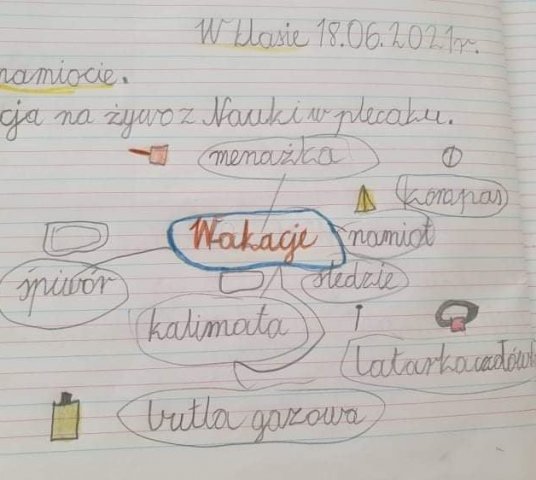 W klasie 18.06.2021r.
namiocie.
cja na żywo z Nauki w plecaku.
menażka
kompas
Wakacje
namiot
śpiwór
śledzie
kalimata
latarka czołówk
butla gazowa